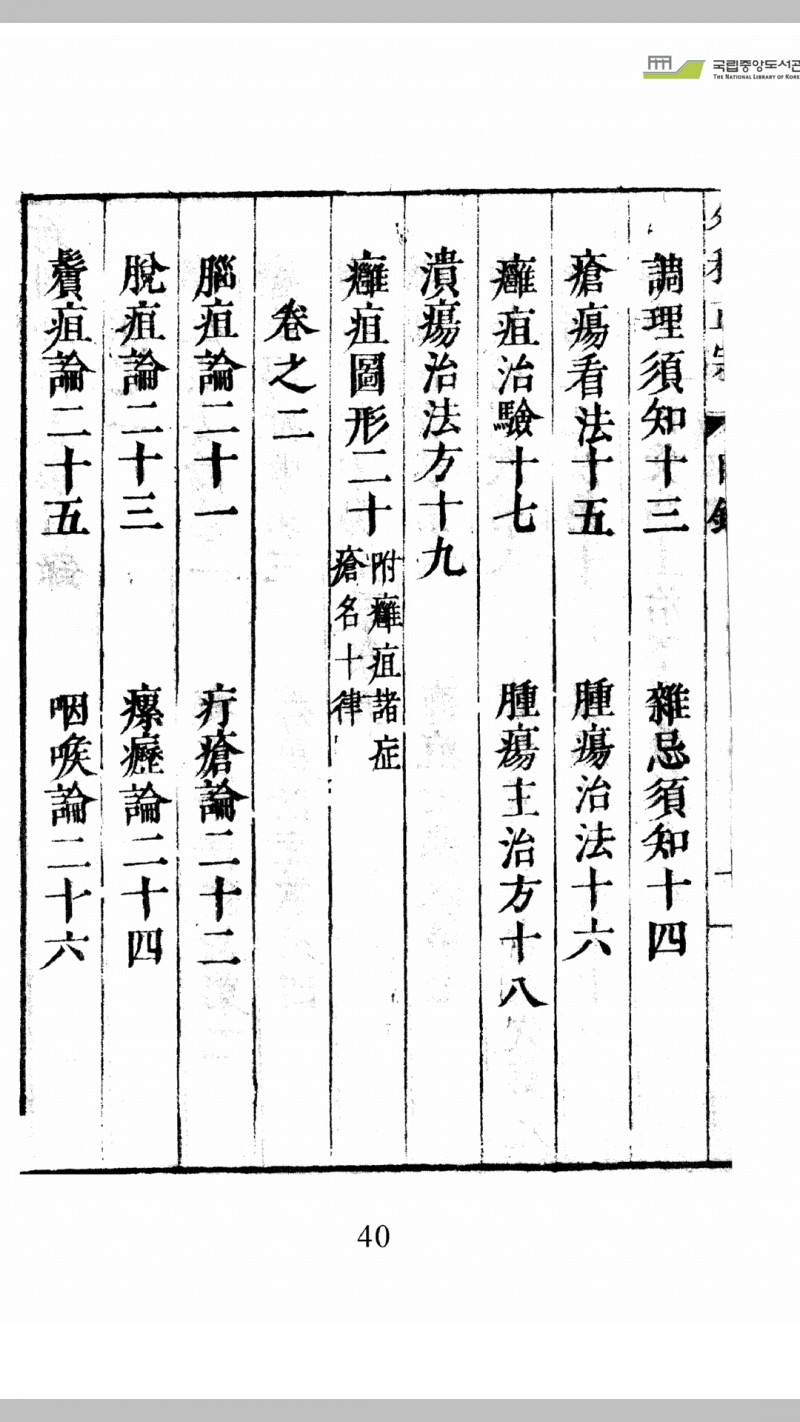 국립중앙도서관
THE NATIONAL LIBRARY OF KOREA
調理須知十三 雜忌須知十四
瘡瘍看法十五 腫瘍治法十六
癰疽治驗十七 腫瘍主治方十八
潰瘍治法方十九
癰疽圖形二十 附癰疽諸症
瘡名十律
卷之二
腦疽論二十一 疔瘡論二十二
脫疽論二十三 瘰癧論二十四
鬢疽論二十五 咽喉論二十六
40